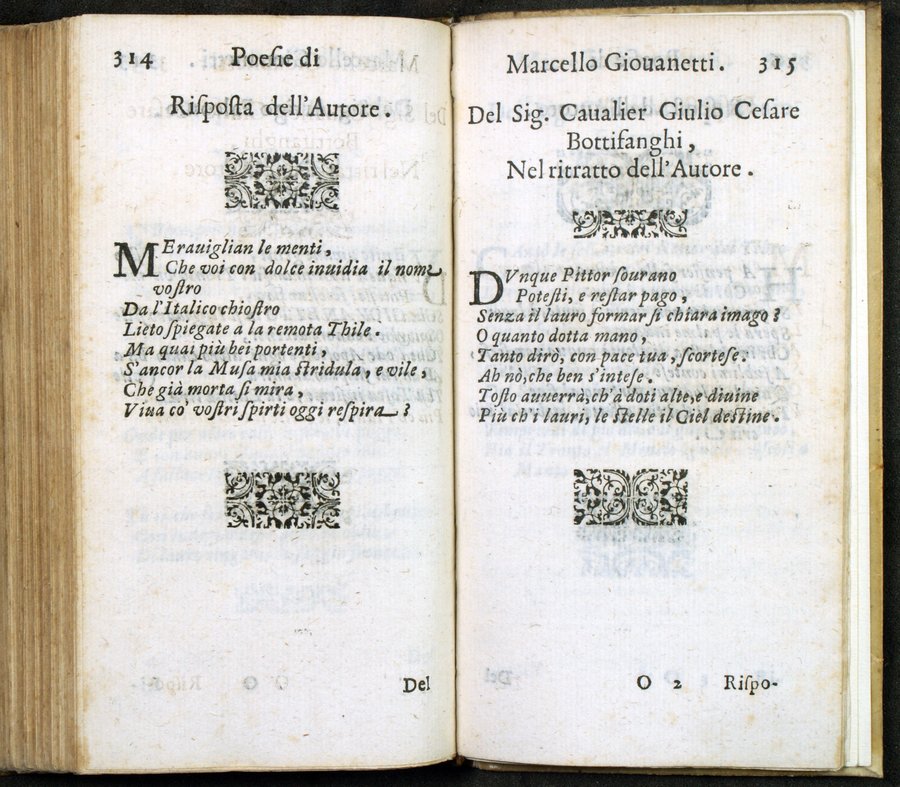 314 Poesie di
Risposta dell'Autore.
MErauiglian le menti,
Che voi con dolce inuidia il nome
vostro
Da l'Italico chiostro
Lieto spiegate a la remota Thile.
Ma quai più bei portenti,
S'ancor la Musa mia stridula, e vile,
Che già morta si mira,
Viua co' vostri spirti oggi respira?
Del
Marcello Giouanetti. 315
Del Sig. Caualier Giulio Cesare
Bottifanghi,
Nel ritratto dell'Autore.
DVnque Pittor sourano
Potesti, e restar pago,
Senza il lauro formar sì chiara imago?
O quanto dotta mano,
Tanto dirò, con pace tua, scortese.
Ah nò, che ben s'intese.
Tosto auuerrà, ch'à doti alte, e diuine
Più ch'i lauri, le stelle il Ciel destine.
O 2 Rispo-